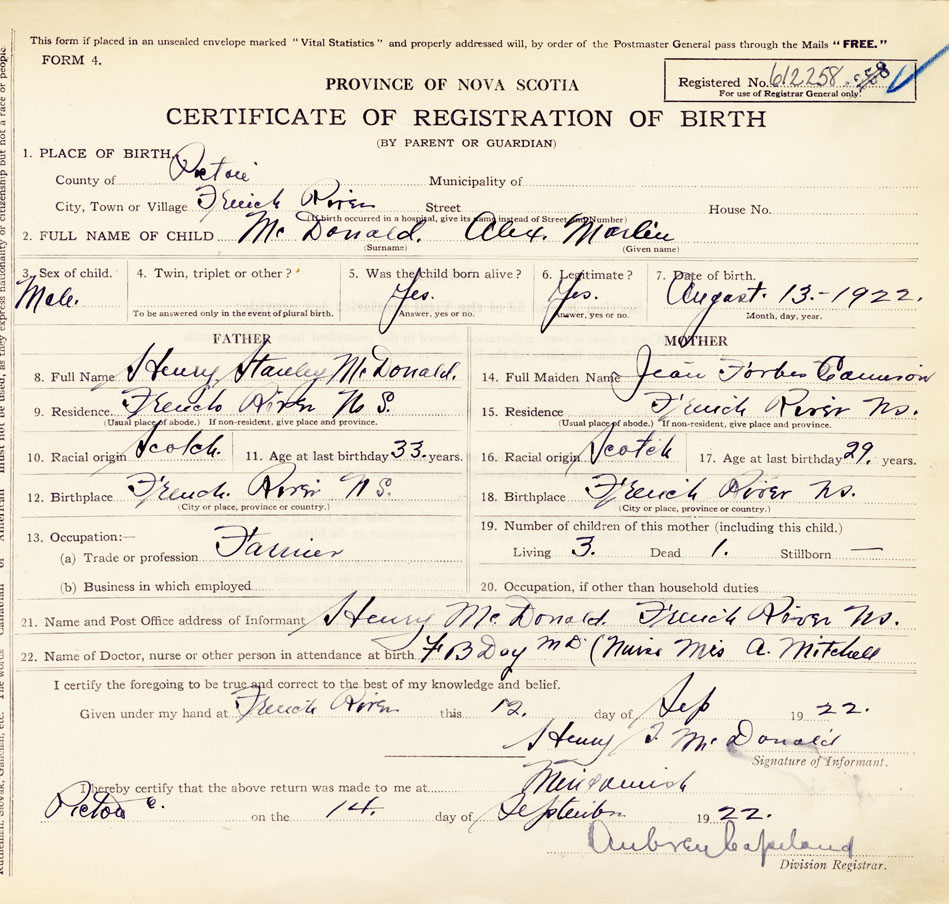 This form if placed in an unsealed envelope marked "Vital Statistics" and properly addressed will, by order of the Postmaster General pass through the Mails "FREE."
FORM 4.
PROVINCE OF NOVA SCOTIA
Registered No. 612258
For use of Registrar General only.
CERTIFICATE OF REGISTRATION OF BIRTH
(BY PARENT OR GUARDIAN)
1. PLACE OF BIRTH
County of Pictou Municipality of
City, Town or Village French River Street House No.
(If birth occurred in a hospital, give its name instead of Street and Number)
2. FULL NAME OF CHILD McDonald. Alex. Marlin
(Surname) (Given name)
3. Sex of child. 4. Twin, triplet or other? 5. Was the child born alive? 6. Legitimate? 7. Date of birth.
Male. Yes. Yes. August. 13.-1922.
To be answered only in the event of plural birth. Answer, yes or no. Answer, yes or no. Month, day, year.
FATHER MOTHER
8. Full Name Henry Stanley McDonald. 14. Full Maiden Name Jean Forbes Cameron
9. Residence French River N S. 15. Residence French River Ns.
(Usual place of abode.) If non-resident, give place and province. (Usual place of abode.) If non-resident, give place and province.
10. Racial origin Scotch. 11. Age at last birthday 33. years. 16. Racial origin Scotch 17. Age at last birthday 29. years.
12. Birthplace French. River N S. 18. Birthplace French River Ns.
(City or place, province or country.) (City or place, province or country.)
13. Occupation:— 19. Number of children of this mother (including this child.)
(a) Trade or profession Farmer Living 3. Dead 1. Stillborn —
(b) Business in which employed 20. Occupation, if other than household duties
21. Name and Post Office address of Informant Henry McDonald. French River Ns.
22. Name of Doctor, nurse or other person in attendance at birth F B Day MD (Nurse Mrs A. Mitchell
I certify the foregoing to be true and correct to the best of my knowledge and belief.
Given under my hand at French River this 12. day of Sep 1922.
Henry S McDonald
Signature of Informant.
I hereby certify that the above return was made to me at
Pictou C. on the 14. day of September 1922.
Aubrey Copeland
Division Registrar.